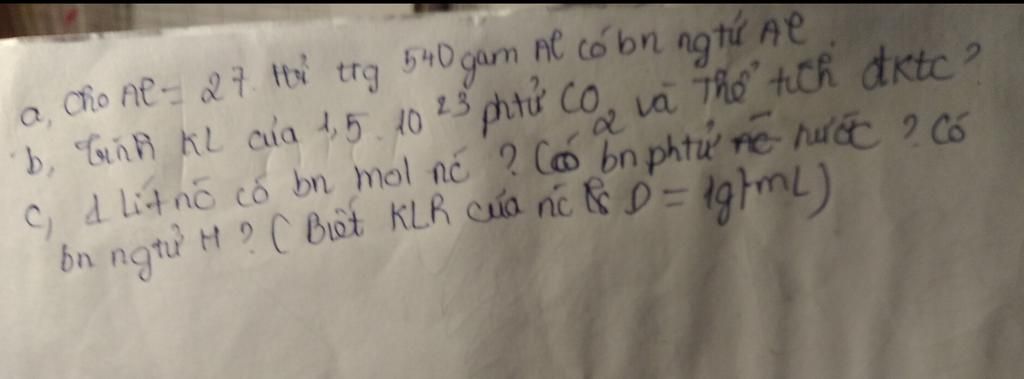 a, Cho Al = 27. Hỏi trg 540 gam Al có bn ng tử Al
b, Tính KL của 1,5.10²³ phtử CO₂ và Thể tích đktc?
c, 1 lít nc có bn mol nc? Có bn phtử nước? Có
bn ng tử H? (Biết KLR của nc là D = 1g/mL)